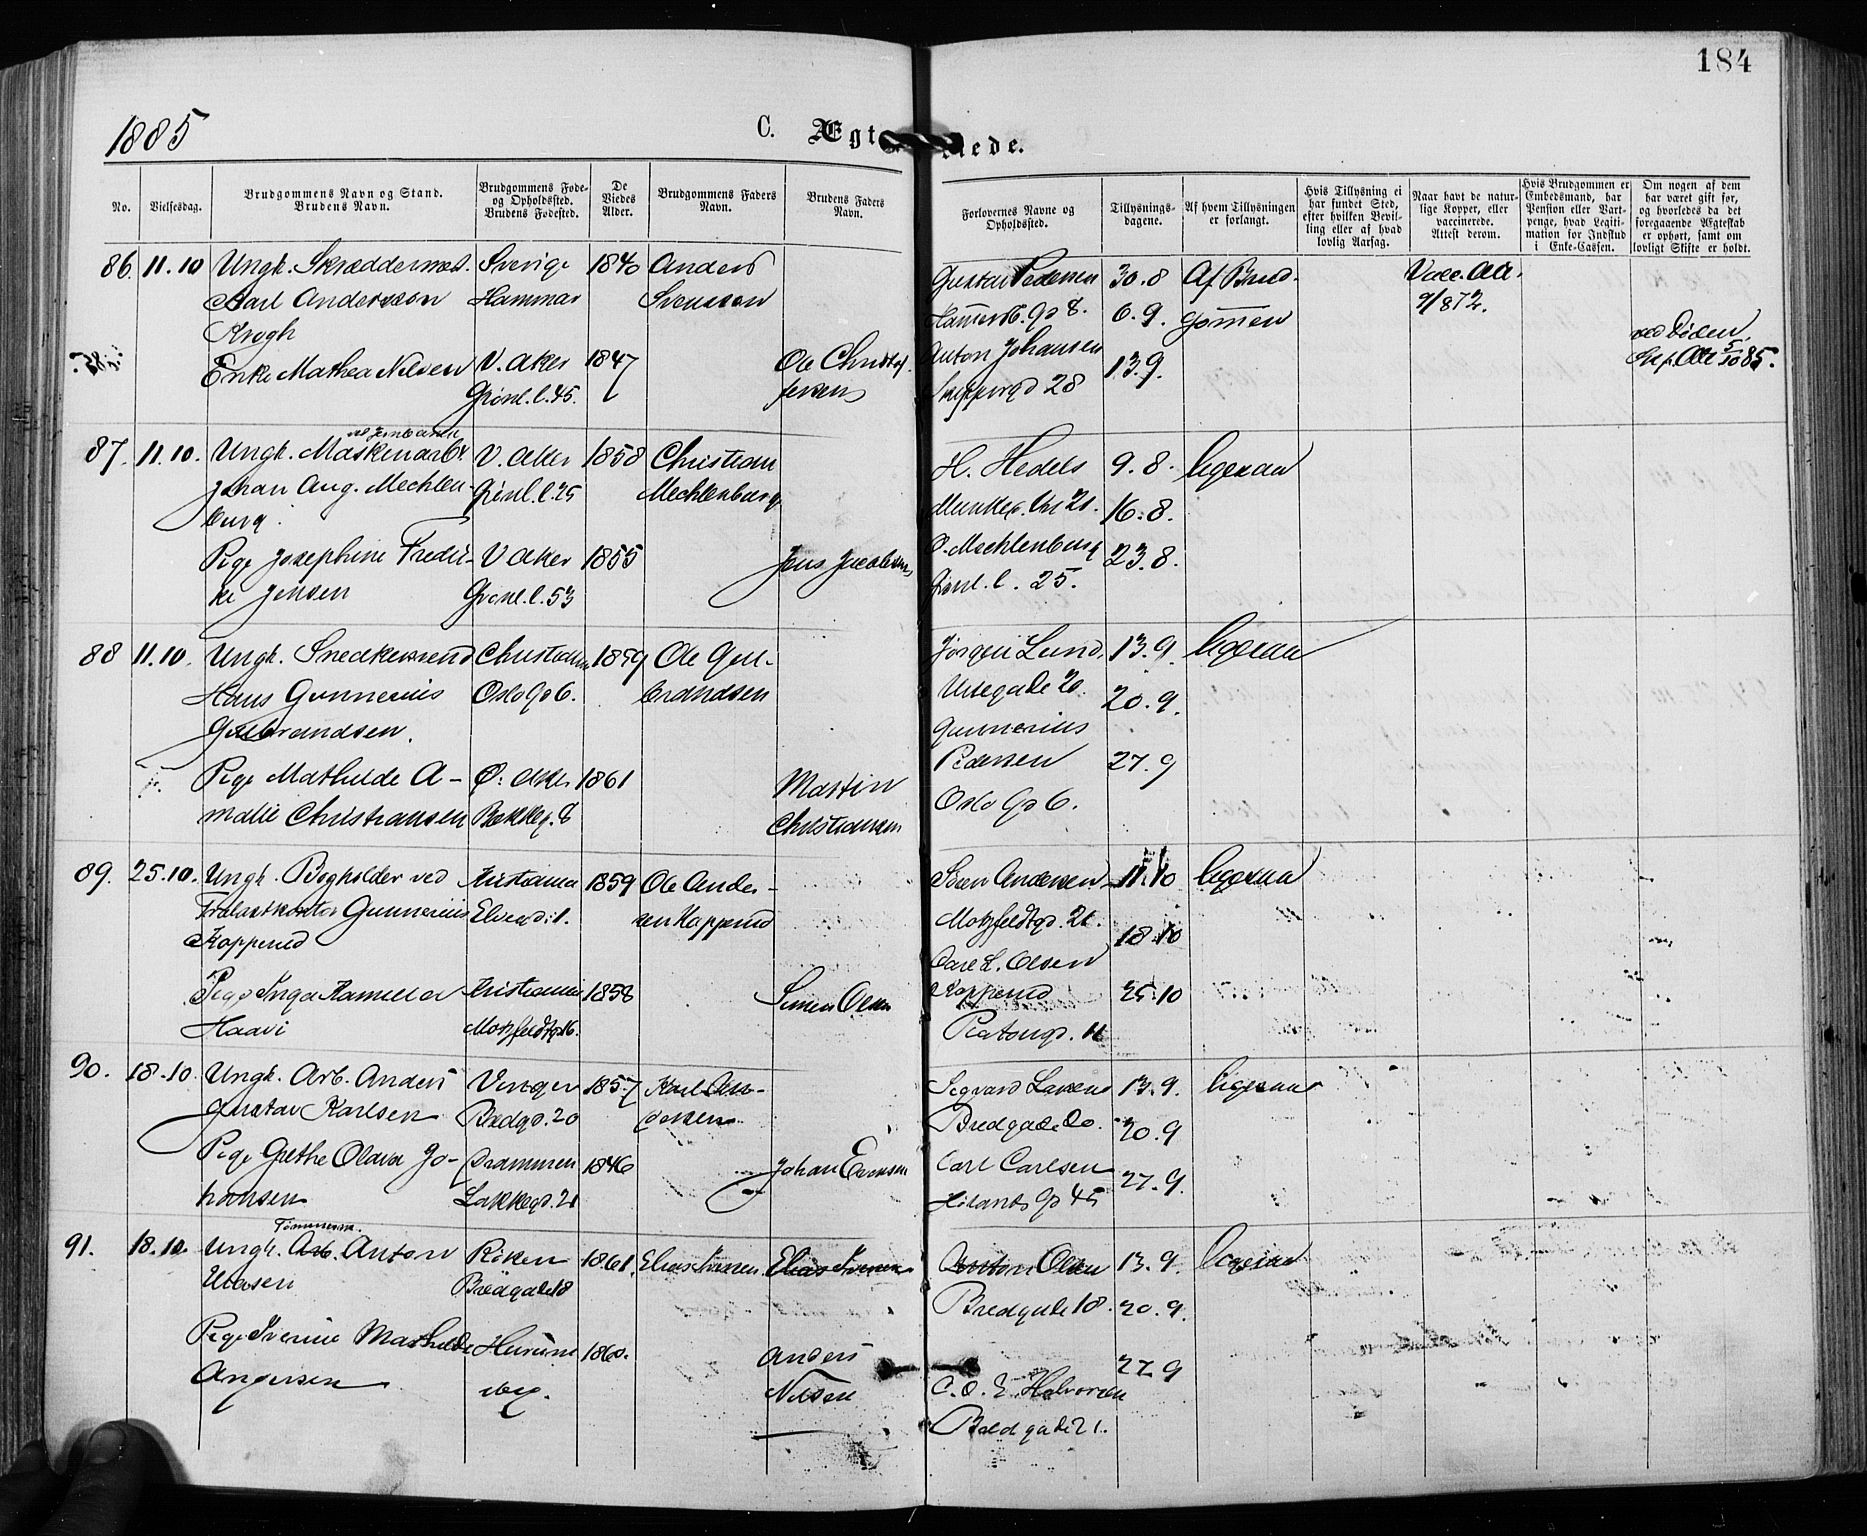 184
1885
C. Ægt
iede.
No.
Vielsesdag.
Brudgommens Navn og Stand.
Brudens Navn.
Brudgommens Føde-
og Opholdssted.
Brudens Fødested.
De
Viedes
Alder.
Brudgommens Faders
Navn.
Brudens Faders
Navn.
Forlovernes Navne og
Opholdssted.
Tillysnings-
dagene.
Af hvem Tillysningen
er forlangt.
Hvis Tillysning ei
har fundet Sted,
efter hvilken Bevil-
ling eller af hvad
lovlig Aarsag.
Naar havt de natur-
lige Kopper, eller
vaccinerede.
Attest derom.
Hvis Brudgommen er
Embedsmand, har
Pension eller Vart-
penge, hvad Legiti-
mation for Indskud
i Enke-Cassen.
Om nogen af dem
har været gift før,
og hvorledes da det
foregaaende Ægteskab
er ophørt, samt om
lovligt Skifte er holdt.
86. 11.10 Ungk. Skræddermest. Sverige 1840 Anders
Karl Andersson Hammar Svensson
Krogh
Enke Mathea Nilsen V. Aker 1847 Ole Christof-
Grønl.l.45. fersen
Gustav Pedersen 30.8 Af Brud-
6.9. gommen
Anton Johansen 13.9.
28
Vacc. Att.
9/872.
ved Døden
Skif. Att 5/10 85.
87. 11.10. Ungk. Maskinarb. V. Aker 1858 Christian
ved Jernbanen
Johan Aug. Mechlen- Grønl.l.25 Mechlenburg
burg.
Pige Josephine Fredri- V Aker 1855 Jens Jacobsen
ke Jensen Grønl.l.53
H. Hedels 9.8. ligesaa
16.8.
O. Mechlenburg 23.8.
Grønl.l. 25.
88 11.10. Ungk. Snedkersvend Christiania 1859 Ole Gul-
Hans Gunnerius Oslo Gd 6. brandsen
Gulbrandsen.
Pige Mathilde A- Ø. Aker 1861 Martin
malie Christiansen Bekkeg. 8 Christiansen
Jørgen Lund, 13.9. ligesaa
Urtegade 20.9.
Gunnerius
Pedersen 27.9
Oslo Gd 6.
89. 25.10. Ungk. Bogholder ved Kristiania 1859 Ole Ander-
Trælastkontor Gunnerius Elvegd. 1. sen Kopperud
Kopperud
Pige Inga Kamilla Kristiania 1858 Simen Olsen
Haavi Motzfeldtgd.16.
Søren Andersen 11.10 ligesaa
Motzfeldtgd. 18.10
Carl L. Olsen
Kopperud 25.10
Platougd. 11
90. 18.10 Ungk. Arb. Anders Vinger 1857 Karl An-
Gustav Karlsen Bredgd. 20 dersen
Pige Grethe Olava Jo- Drammen 1846 Johan Evensen
hansen Lakkegd. 21
Segvard Larsen 13.9. ligesaa
Bredgade 20. 20.9
Carl Carlsen 27.9.
Hølands Gd 45
Tømmerm.
91. 18.10. Ungk. Arb. Anton Røken 1861. Elias Iversen Elias Iversen
Eliasen Bredgade 18
Pige Iverine Mathilde Hurum 1860. Anders
Andersen Nilsen
Olsen 13.9. ligesaa
Bredgade 18. 20.9.
27.9
C. O. E. Halvorsen
21.